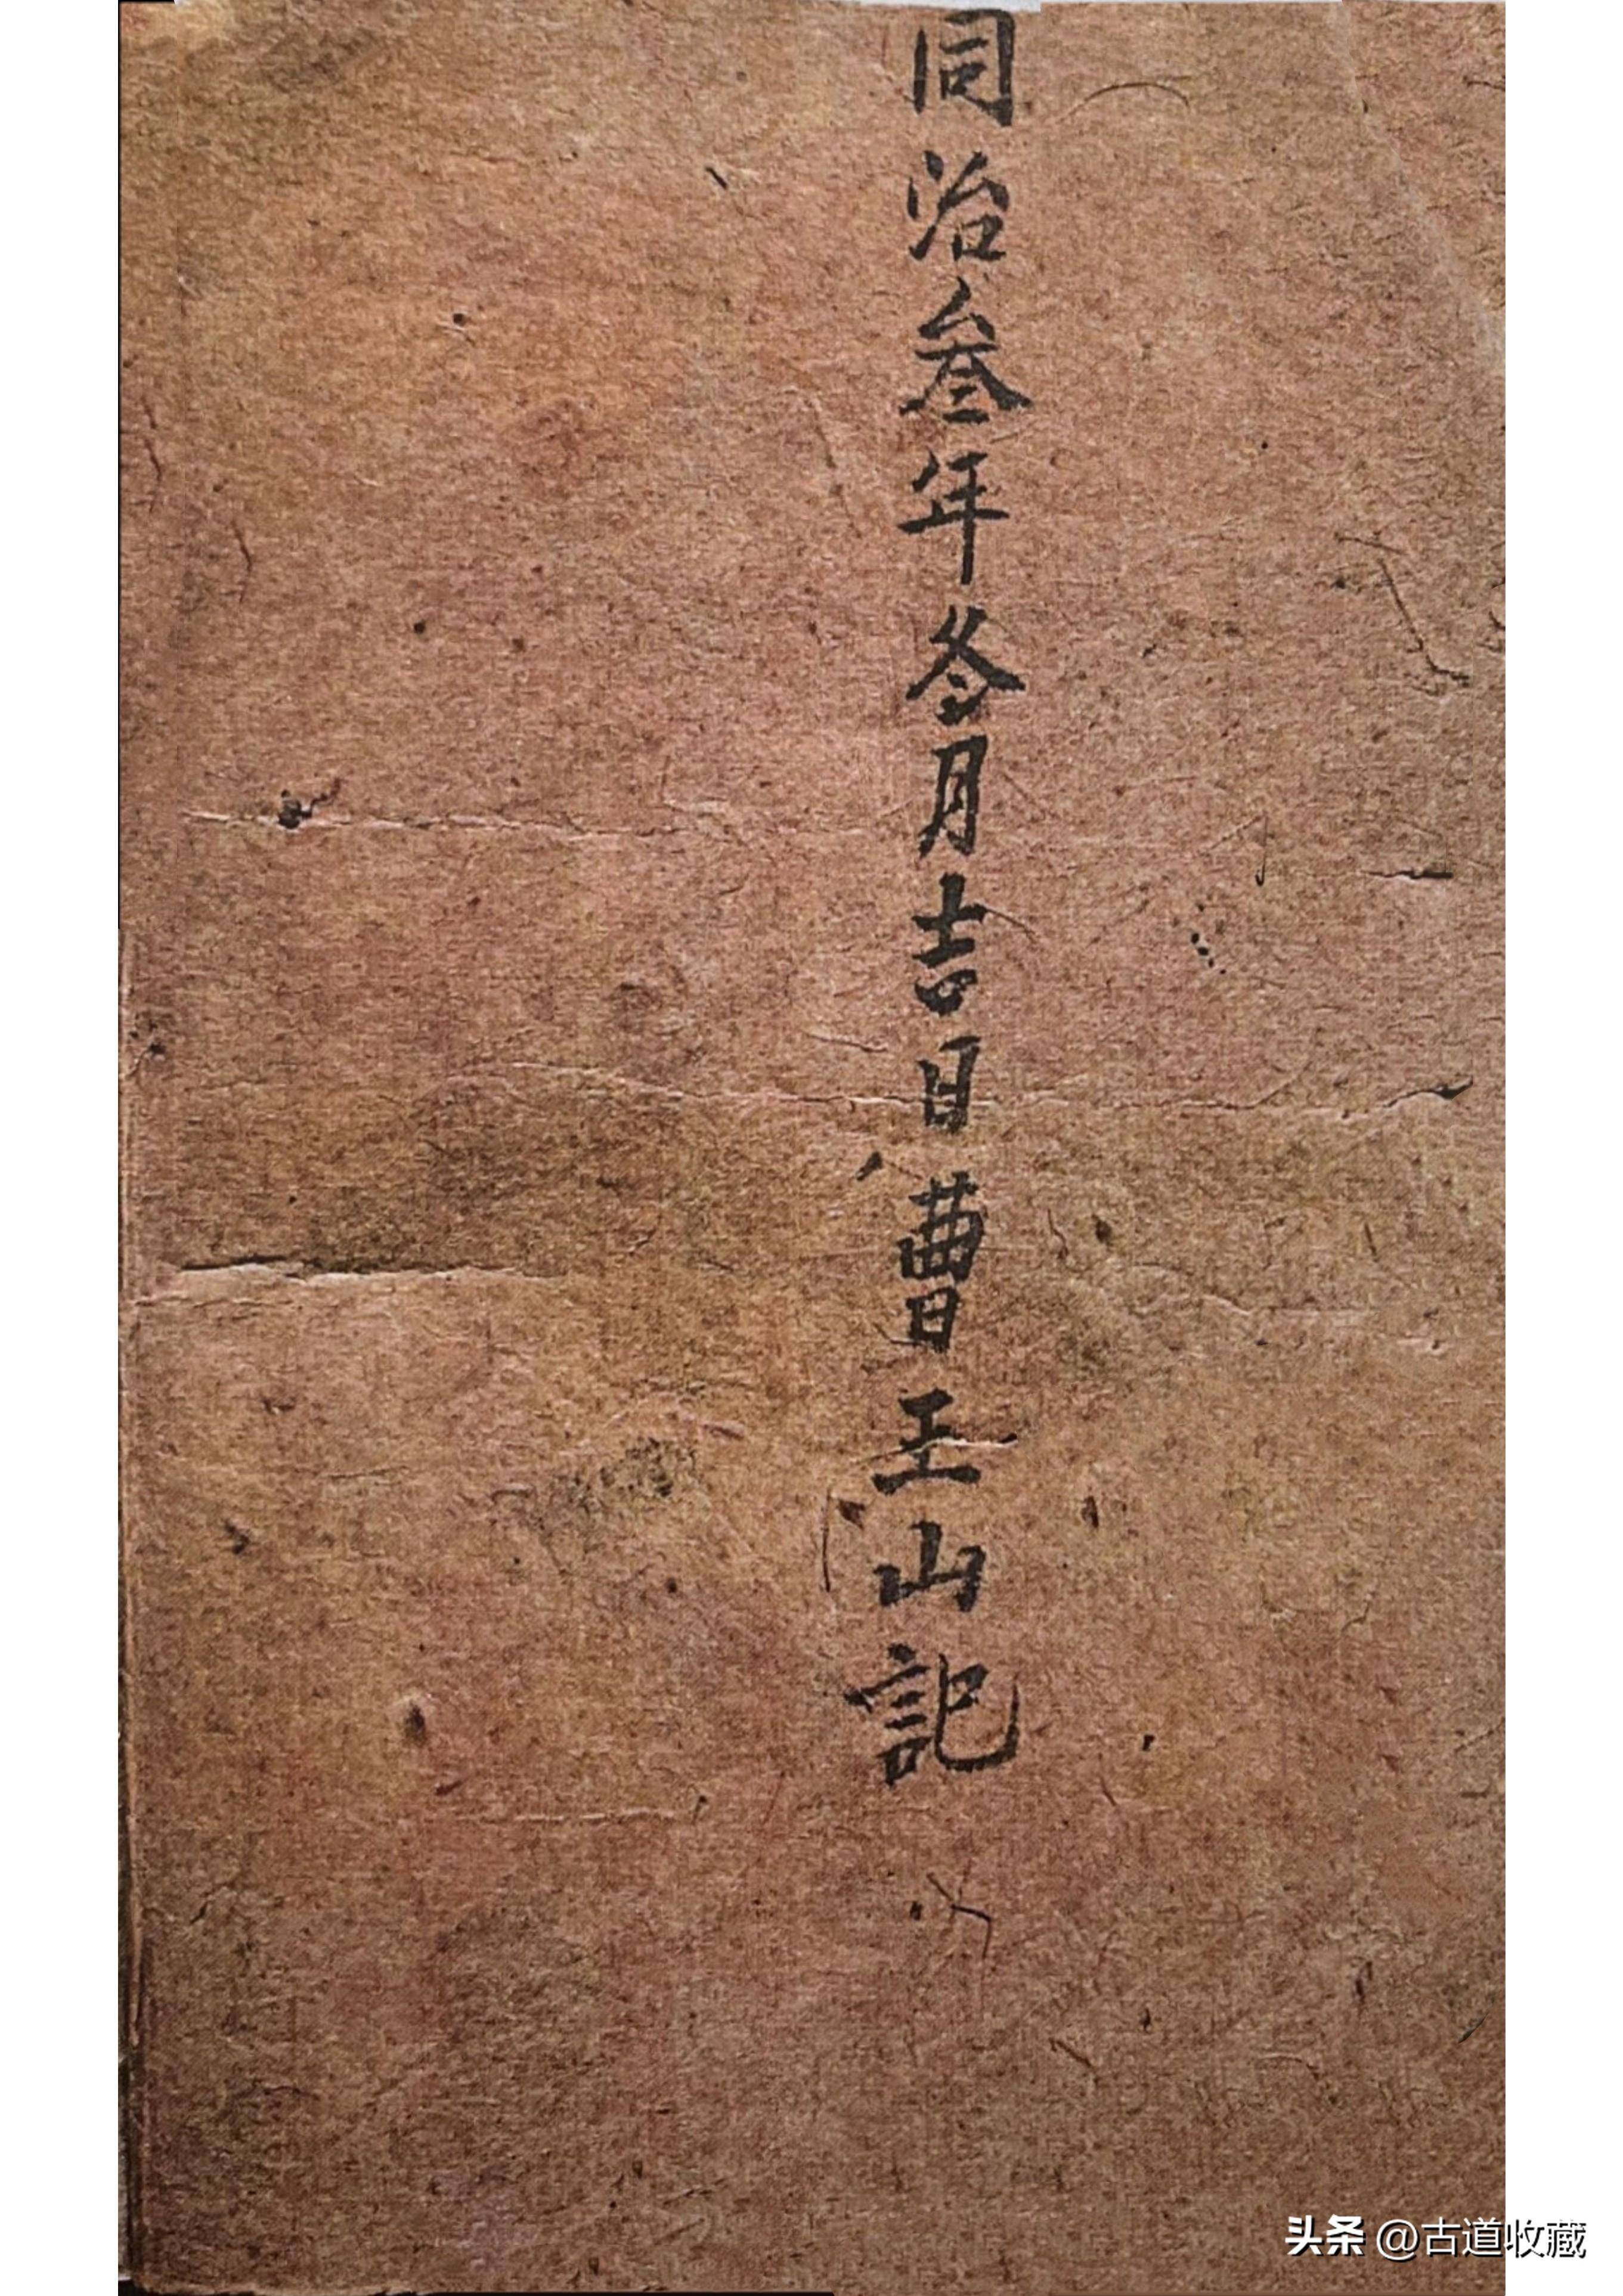 同治叁年冬月吉日曹玉山記
头条 @古道收藏